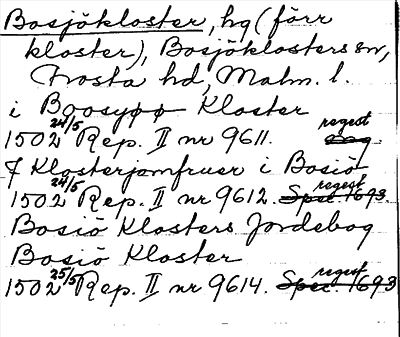 Bosjökloster, hg (förr
kloster), Bosjöklosters sn,
Frosta hd, Malm. l.
i Boosyøø Kloster
1502 24/5 Rep. II nr 9611. regest
J Klosterjomfruer i Bosiö
1502 24/5 Rep. II nr 9612. Spec. 1693 regest
Bosiö Klosters Jordebog
Bosiö Kloster
1502 25/5 Rep. II nr 9614. Spec. 1693 regest